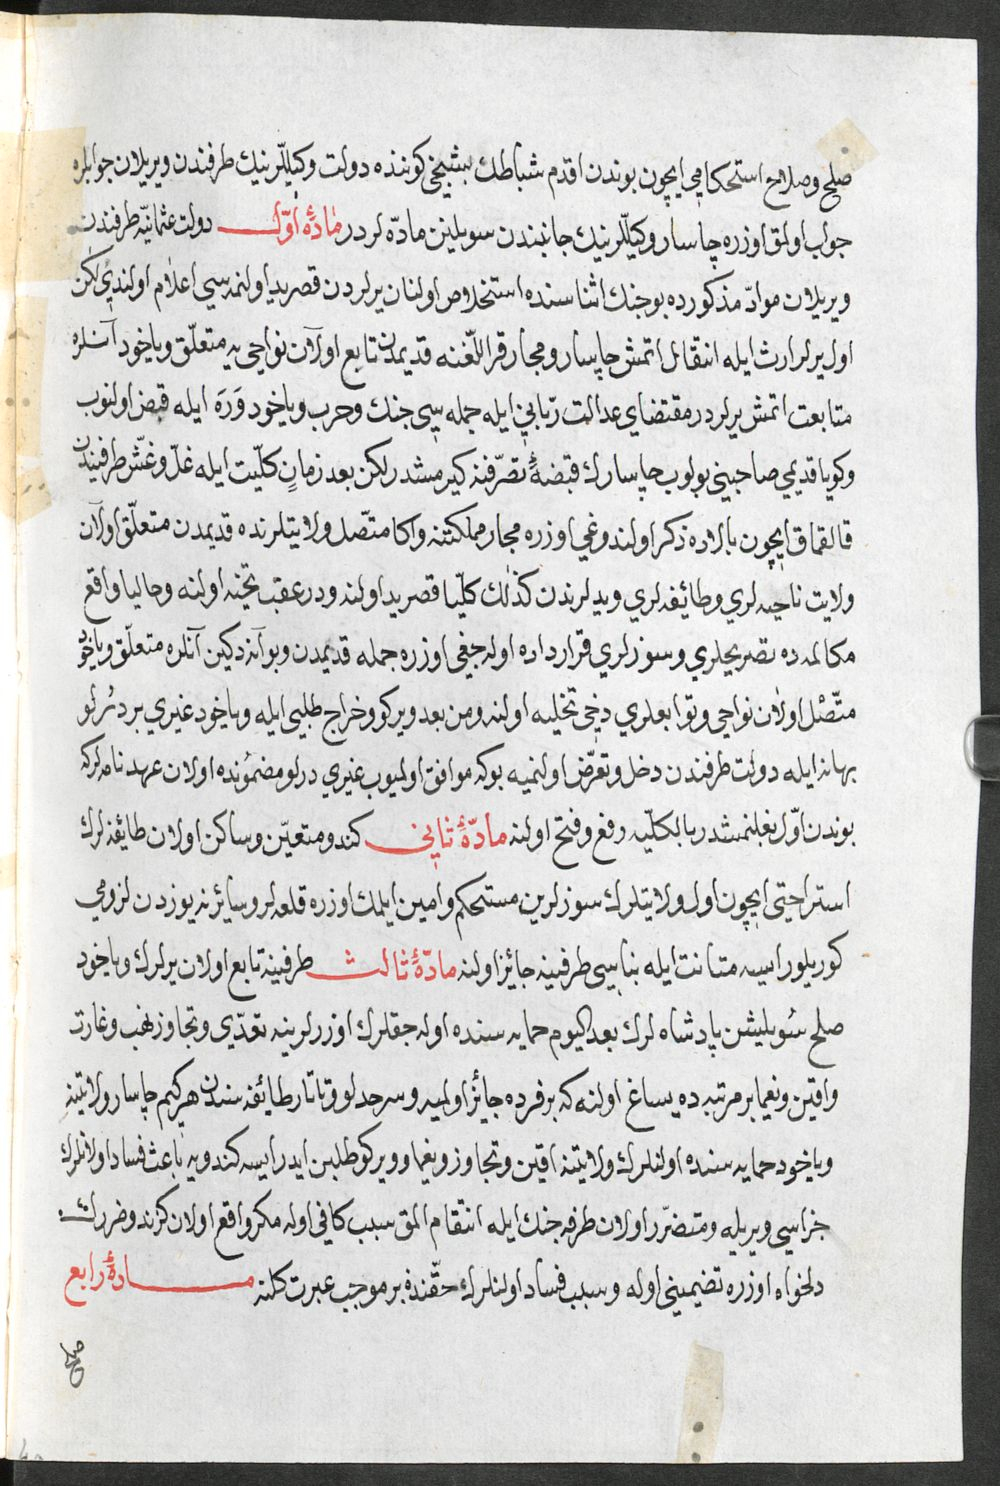 صلح وصلاح استحكامي ايچون بوندن اقدم شباطك بشنجي كوننده دولت وكيللرينك طرفندن ويريلان جوابلره
جواب اولمق اوزره چاسار وكيللرينك جانبندن سويلنين مادّه لردر مادّۀ اوّل دولت عثمانيّه طرفندن
ويريلان موادّ مذكورده بو جنك اثناسنده استخلاص اولنان يرلردن قصريد اولنمه سي اعلام اولندي لكن
اول يرلر ارث ايله انتقال اتمش چاسار ومجار قراللغنه قديمدن تابع اولان نواحي يه متعلّق وياخود آنلره
متابعت اتمش يرلردر مقتضاي عدالت ربّاني ايله جمله سي جنك وحرب وياخود وَرَه ايله قبض اولنوب
وكويا قديمي صاحبيني بولوب چاسارك قبضۀ تصرّفنه كيرمشدر لكن بعد زمانٍ كلّيت ايله غلّ وغشّ طرفيندن
قالقمق ايچون بالاده ذكر اولندوغي اوزره مجار مملكتنه واكا متّصل ولايتلرنده قديمدن متعلّق اولان
ولايت ناحيه لري وطائفه لري ويدلرندن كذلك كلّيا قصريد اولنه ودرعقب تخليه اولنه وحاليا واقع
مكالمه ده تصريحلري وسوزلري قرارداده اوله جغي اوزره جمله قديمدن وبو آنه دكين آنلره متعلّق وياخود
متّصل اولان نواحي وتوابعلري دخي تخليه اولنه ومن بعد ويركو وخراج طلبي ايله وياخود غيري بر درلو
بهانه ايله دولت طرفندن دخل وتعرّض اولنميه بوكه موافق اولميوب غيري درلو مضمونده اولان عهدنامه لركه
بوندن اوّل بغلنمشدر بالكلّيه رفع وفتح اولنه مادّۀ ثاني كندو متعيّن وساكن اولان طائفه لرك
استراحتي ايچون اول ولايتلرك سوزلرين مستحكم وامين ايلمك اوزره قلعه لر وسائرنه يوزدن لزومي
كوريلور ايسه متانت ايله بناسي طرفينه جائز اولنه مادّۀ ثالث طرفينه تابع اولان يرلرك وياخود
صلح سويليشن پادشاه لرك بعد اليوم حمايه سنده اوله جقلرك اوزرلرينه تعدّي وتجاوز نهب وغارت
واقين ويغما بر مرتبه ده يساغ اولنه كه بر فرده جائز اولميه وسرحدلو وتاتار طائفه سندن هركيم چاسار ولايتنه
وياخود حمايه سنده اولنلرك ولايتنه اقين وتجاوز ويغما وويركو طلبين ايدر ايسه كندويه باعث فساد اولانلرك
جزاسي ويريله ومتضرّر اولان طرفه جنك ايله انتقام المق سبب كافي اوله مكر واقع اولان كزند وضررك
دلخواه اوزره تضميني اوله وسبب فساد اولنلرك حقّنده بر موجب عبرت كلنه مادّۀ رابع
صلح